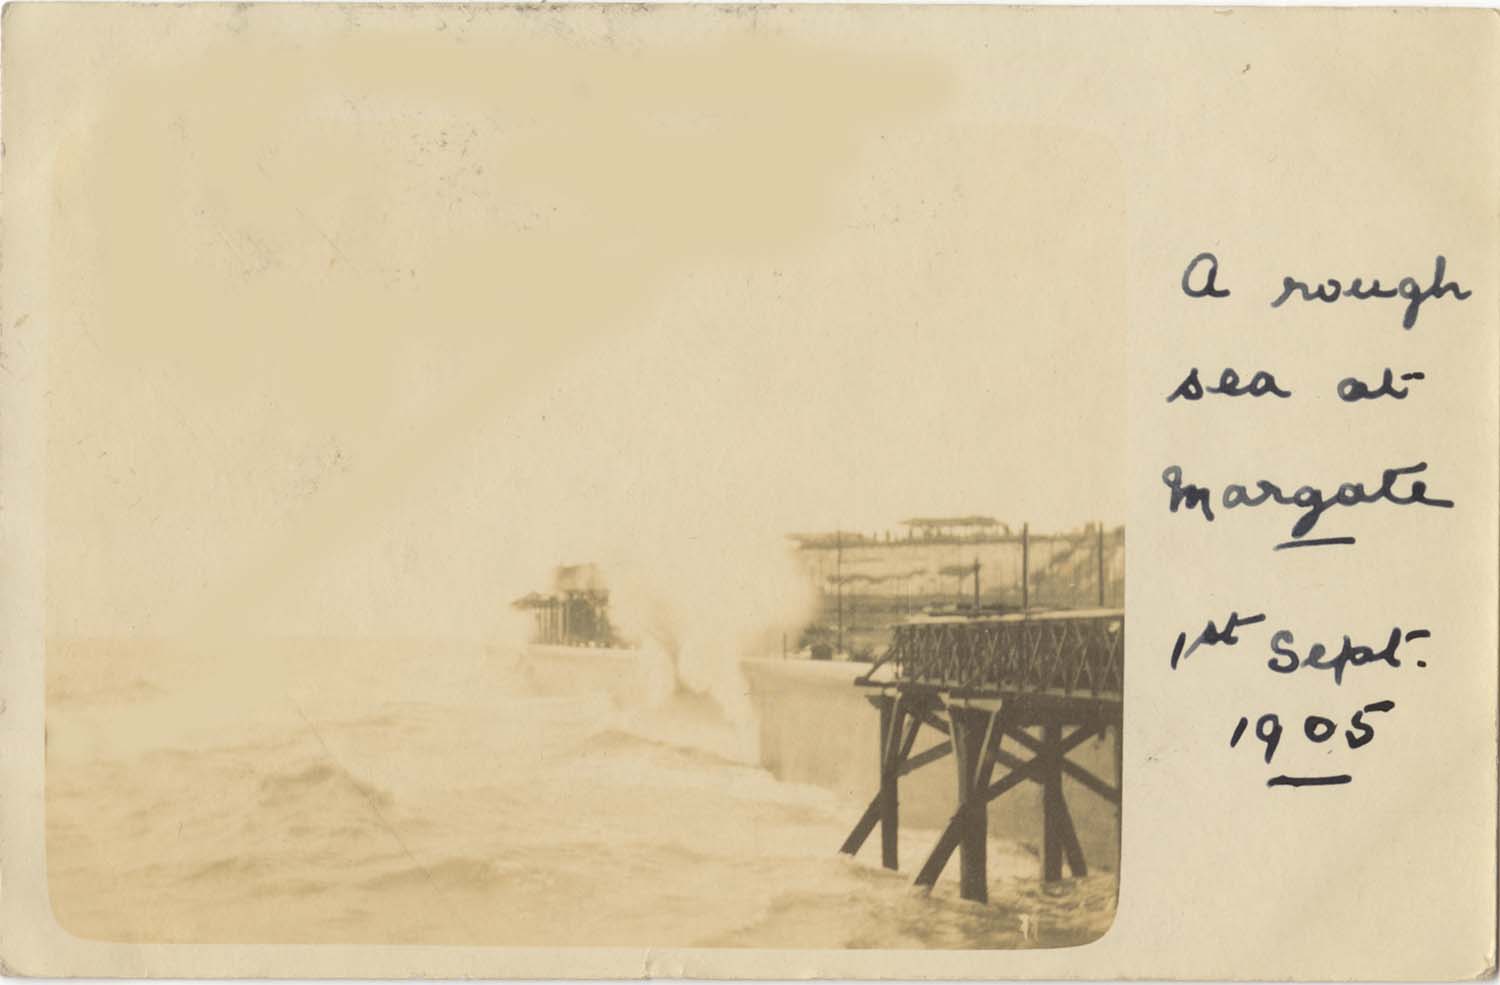 A rough
sea at
Margate
1st Sept.
1905